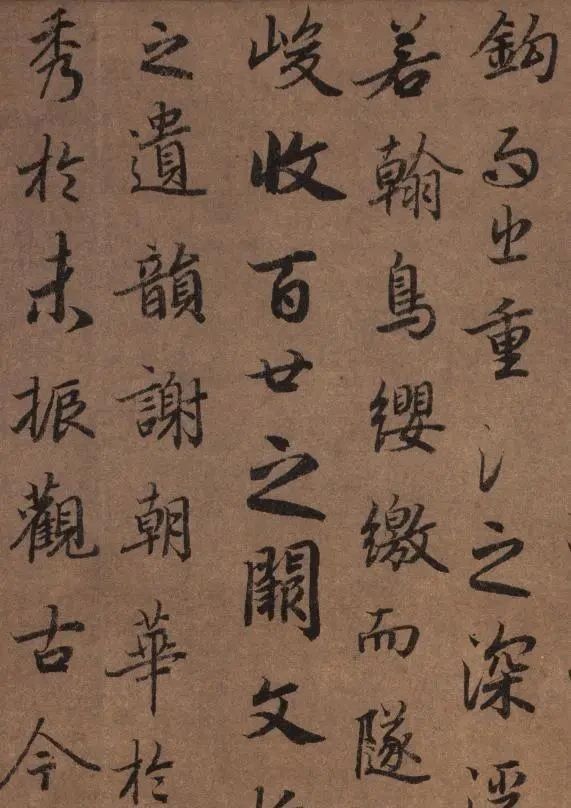 鈎而出重之深
若翰鳥纓繳而隧
峻收百廿之闕文
之遺韻謝朝華於
秀於未振觀古今